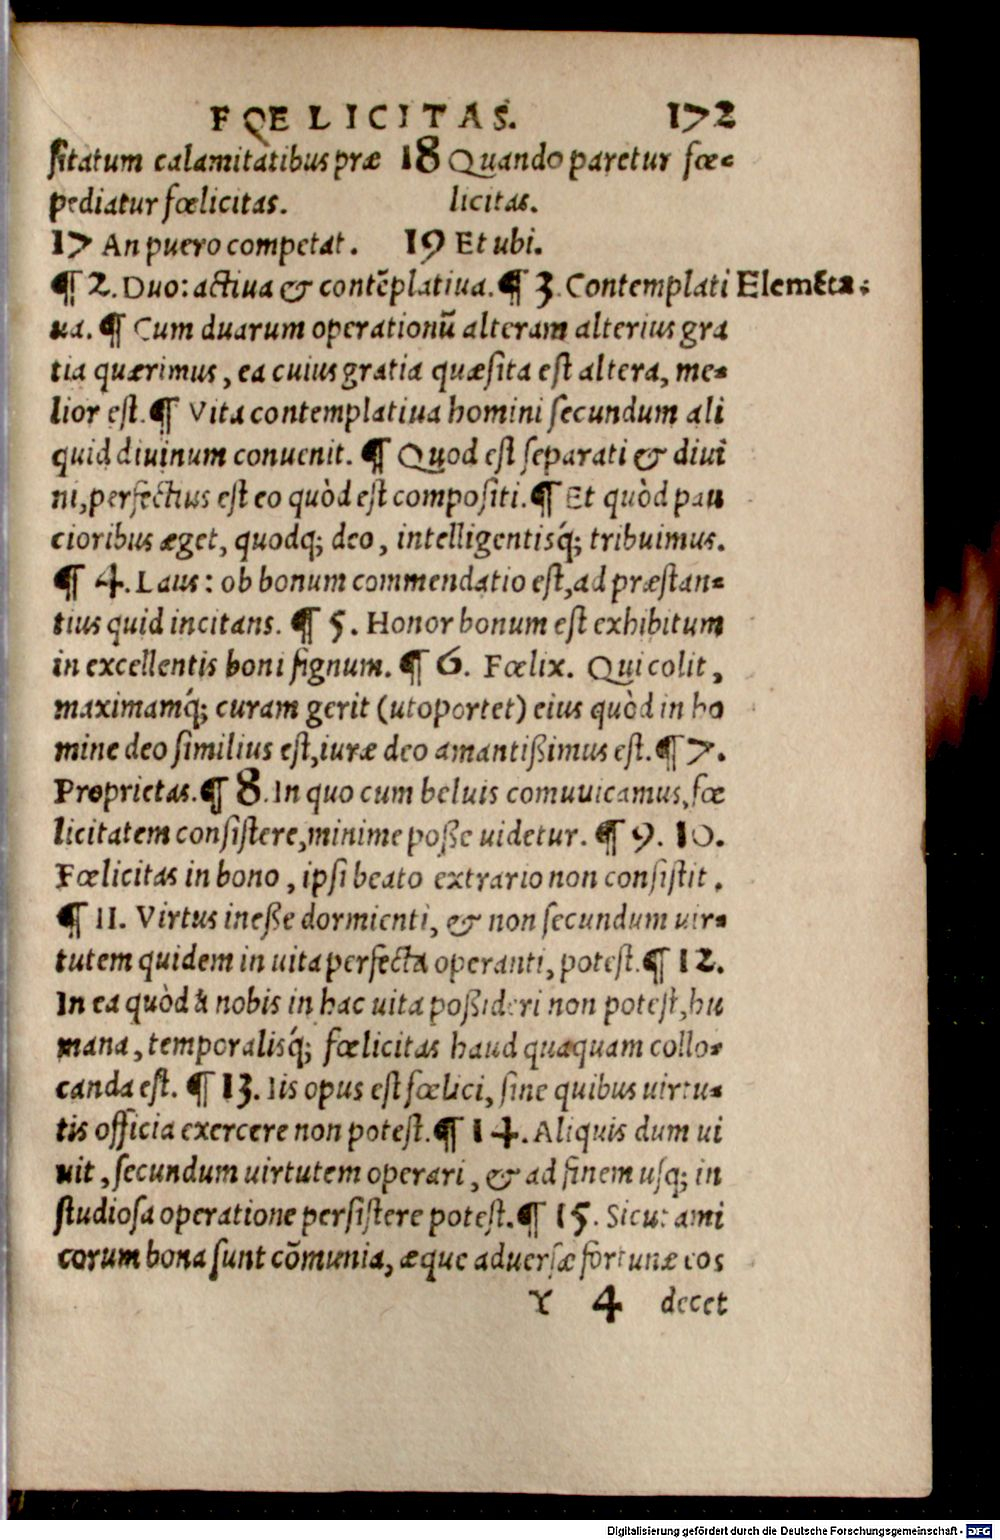 FŒLICITAS. 172
sitatum calamitatibus præ
pediatur fœlicitas.
17 An puero competat.
18 Quando paretur fœ-
licitas.
19 Et ubi.
¶ 2. Duo: actiua & contēplatiua. ¶ 3. Contemplati Elemēta.
ua. ¶ Cum duarum operationū alteram alterius gra
tia quærimus, ea cuius gratia quæsita est altera, me-
lior est. ¶ Vita contemplatiua homini secundum ali
quid diuinum conuenit. ¶ Quod est separati & diui
ni, perfectius est eo quòd est compositi. ¶ Et quòd pau
cioribus æget, quodq; deo, intelligentisq́; tribuimus.
¶ 4. Laus: ob bonum commendatio est, ad præstan-
tius quid incitans. ¶ 5. Honor bonum est exhibitum
in excellentis boni signum. ¶ 6. Fœlix. Qui colit,
maximamq́; curam gerit (ut oportet) eius quòd in ho
mine deo similius est, iuræ deo amantißimus est. ¶ 7.
Proprietas. ¶ 8. In quo cum beluis comuuicamus, fœ
licitatem consistere, minime poße uidetur. ¶ 9. 10.
Fœlicitas in bono, ipsi beato extrario non consistit.
¶ 11. Virtus ineße dormienti, & non secundum uir-
tutem quidem in uita perfecta operanti, potest. ¶ 12.
In ea quòd à nobis in hac uita poßideri non potest, hu
mana, temporalisq́; fœlicitas haud quaquam collo-
canda est. ¶ 13. Iis opus est fœlici, sine quibus uirtu-
tis officia exercere non potest. ¶ 14. Aliquis dum ui
uit, secundum uirtutem operari, & ad finem usq; in
studiosa operatione persistere potest. ¶ 15. Sicut ami
corum bona sunt cōmunia, æque aduersæ fortunæ eos
Y 4 decet
Digitalisierung gefördert durch die Deutsche Forschungsgemeinschaft - DFG